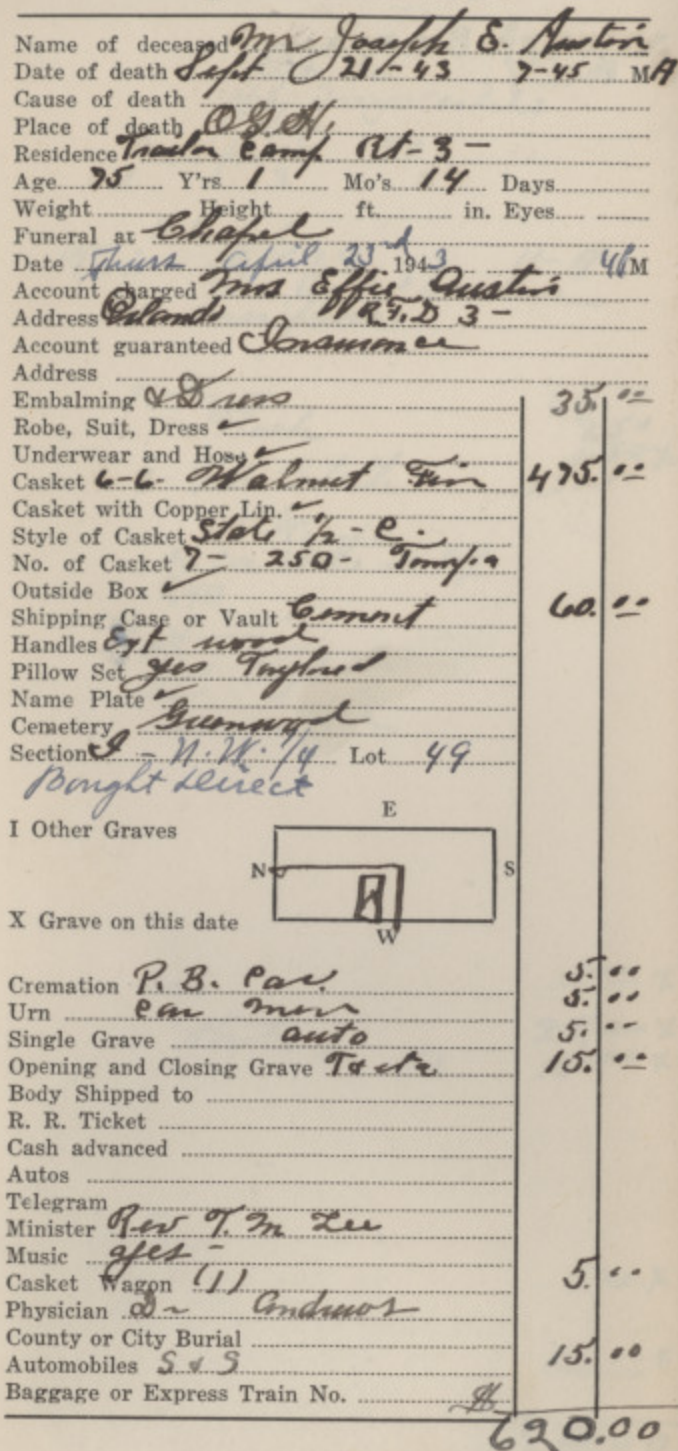 Name of deceased Mr Joseph E. Austin
Date of death Sept 21-43 7-45 MA
Cause of death
Place of death O.G.H.
Residence Trailer Camp Rt-3-
Age 75 Y'rs 1 Mo's 14 Days
Weight Height ft. in. Eyes
Funeral at Chapel
Date Thurs april 23rd 1943 4PM
Account charged Mrs Effie Austin
Address Orlando R.F.D 3-
Account guaranteed Insurance
Address
Embalming & Dress 35.00
Robe, Suit, Dress ✓
Underwear and Hose ✓
Casket 6-6- Walnut Fin 475.00
Casket with Copper Lin. ✓
Style of Casket State 1/2-C.
No. of Casket 7- 250- Tampa
Outside Box ✓
Shipping Case or Vault Cement 60.00
Handles Ext wood
Pillow Set yes Taylored
Name Plate ✓
Cemetery Greenwood
Section I - N.W. 1/4 Lot 49
Bought Direct
E
I Other Graves
N S
X Grave on this date
W
Cremation P. B. Car. 5.00
Urn men 5.00
Single Grave auto 5.00
Opening and Closing Grave 15.00
Body Shipped to
R. R. Ticket
Cash advanced
Autos
Telegram
Minister Rev T. M Lee
Music yes -
Casket Wagon (1) 5.00
Physician Dr Andrews
County or City Burial
Automobiles S & S 15.00
Baggage or Express Train No.
620.00